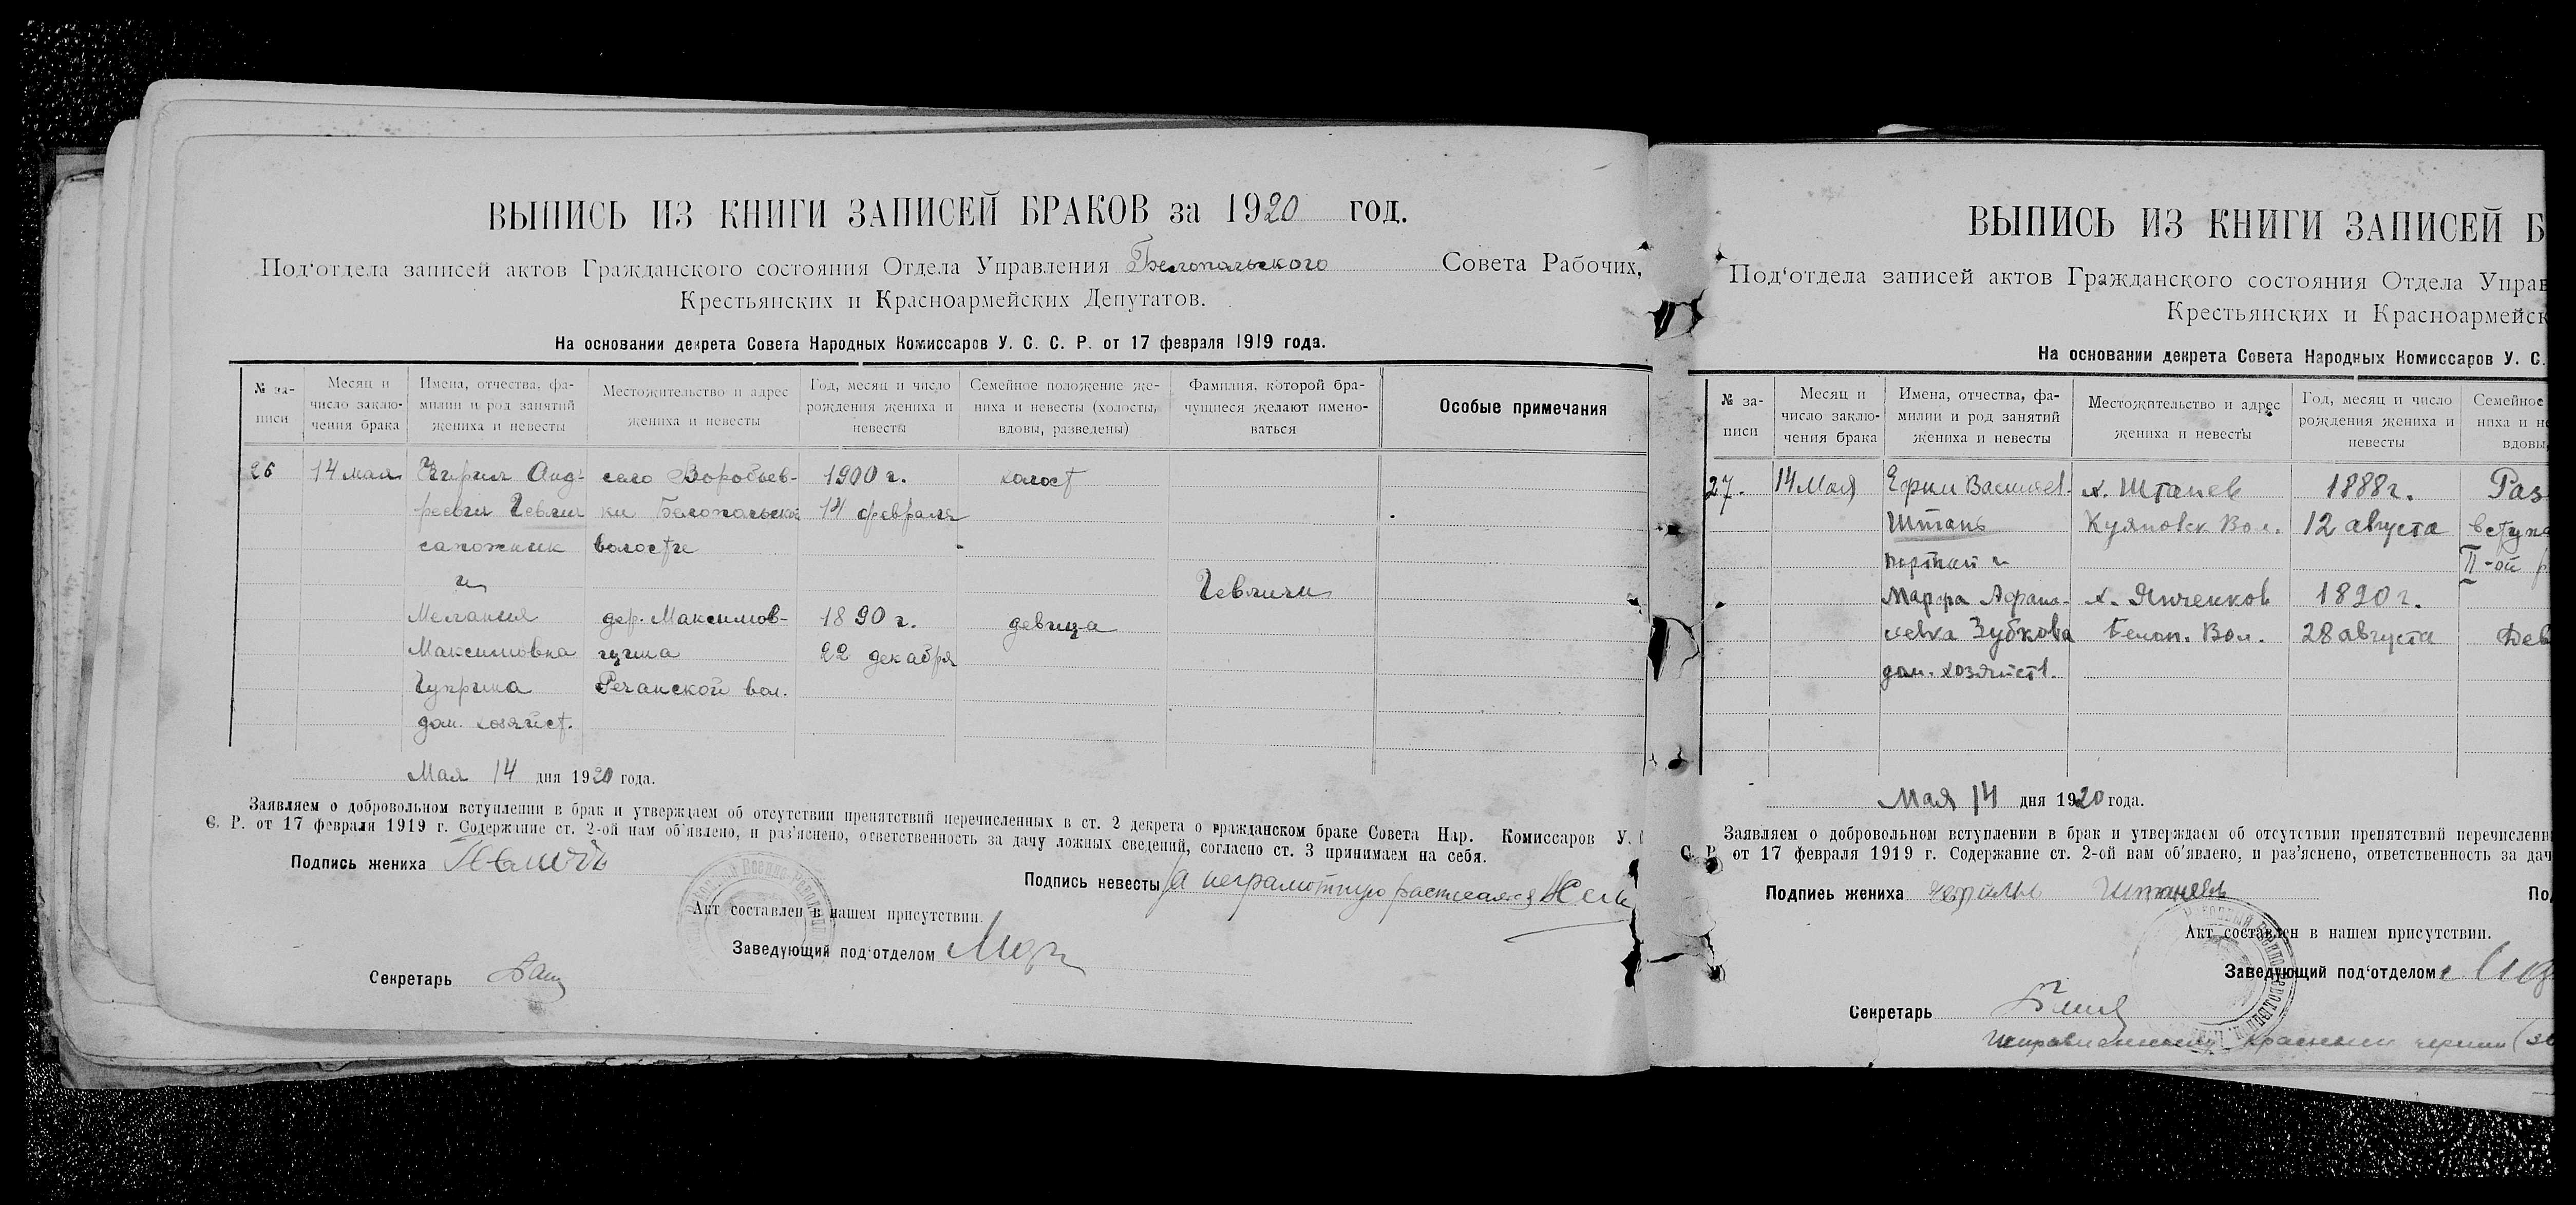 ВЫПИСЬ ИЗ КНИГИ ЗАПИСЕЙ БРАКОВ за 1920 год.
Под'отдела записей актов Гражданского состояния Отдела Управления Белопольского Совета Рабочих,
Крестьянских и Красноармейских Депутатов.
На основании декрета Совета Народных Комиссаров У. С. С. Р. от 17 февраля 1919 года.
№ за-
писи
Месяц и
число заклю-
чения брака
Имена, отчества, фа-
милии и род занятий
жениха и невесты
Местожительство и адрес
жениха и невесты
Год, месяц и число
рождения жениха и
невесты
Семейное положение же-
ниха и невесты (холосты,
вдовы, разведены)
Фамилия, которой бра-
чущиеся желают имено-
ваться
Особые примечания
26 14 мая Кирил Анд- село Воробьев- 1900 г. холост
реевич ки Белопольской 14 февраля
сапожник волости
и
Мелания дер. Максимов- 1890 г. девица
Максимовна щина 22 декабря
Чуприна Речанской вол.
дом. хозяйст.
Мая 14 дня 1920 года.
Заявляем о добровольном вступлении в брак и утверждаем об отсутствии препятствий перечисленных в ст. 2 декрета о гражданском браке Совета Нар. Комиссаров У.
С. Р. от 17 февраля 1919 г. Содержание ст. 2-ой нам об'явлено, и раз'яснено, ответственность за дачу ложных сведений, согласно ст. 3 принимаем на себя.
Подпись жениха
Подпись невесты а неграмотную расписался
Акт составлен в нашем присутствии.
Заведующий под'отделом
Секретарь
ВЫПИСЬ ИЗ КНИГИ ЗАПИСЕЙ Б
Под'отдела записей актов Гражданского состояния Отдела Управ
Крестьянских и Красноармейск
На основании декрета Совета Народных Комиссаров У. С.
№ за-
писи
Месяц и
число заклю-
чения брака
Имена, отчества, фа-
милии и род занятий
жениха и невесты
Местожительство и адрес
жениха и невесты
Год, месяц и число
рождения жениха и
невесты
Семейное
ниха и не
вдовы
27. 14 Мая Ефим Васильев. х. Штанев 1888 г. Раз
Штань Куяновск Вол. 12 августа вступа
портной и II-ой
Марфа Афана- х. Янченков 1890 г.
сиевна Зубкова Белоп. Вол. 28 августа Дев
дом. хозяйств.
Мая 14 дня 1920 года.
Заявляем о добровольном вступлении в брак и утверждаем об отсутствии препятствий перечисленн
С. Р. от 17 февраля 1919 г. Содержание ст. 2-ой нам об'явлено, и раз'яснено, ответственность за дач
Подпись жениха
По
Акт составлен в нашем присутствии.
Заведующий под'отделом
Секретарь